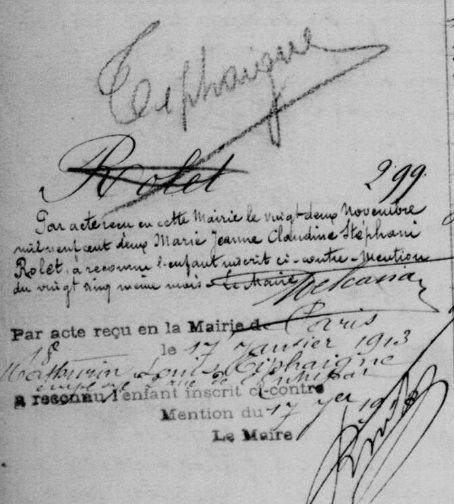 Tiphaigne
Rolet
299
Par acte recu en cette Mairie le vingt deux Novembre
mil neuf cent deux Marie Jeanne Claudine Stéphani
Rolet, a reconnu l'enfant inscrit ci-contre Mention
du vingt cinq même mois Le Maire
Par acte reçu en la Mairie de Paris
18e
le 17 Janvier 1913
Mathurin Louis Tiphaigne
employé rue de
a reconnu l'enfant inscrit ci-contre
Mention du 17 Jer
Le Maire